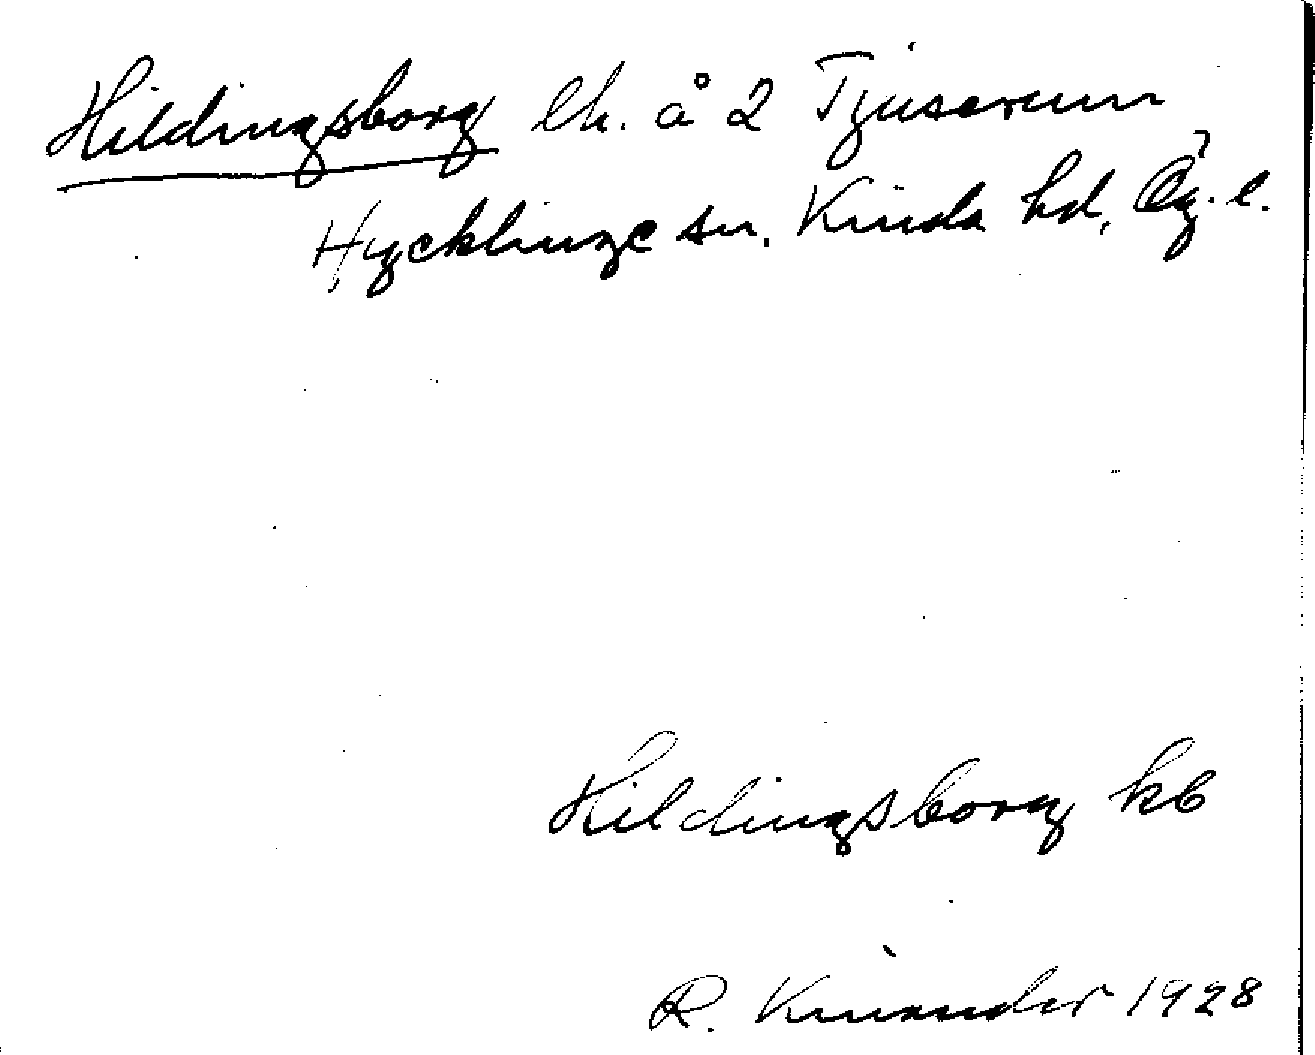 Hildingsborg lh. å 2 Tjuserum
Hycklinge sn. Kinda hd, Ög. l.
Hildingsborg kb
R. Kinander 1928